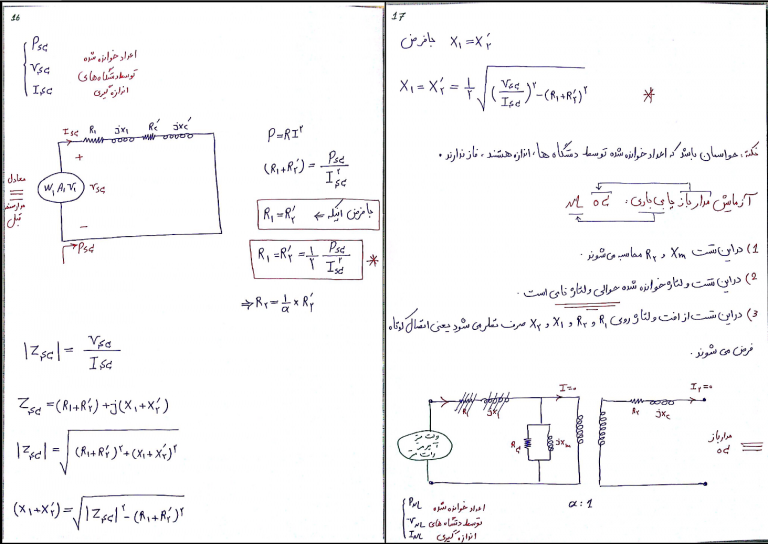 16
P_sc
V_sc
I_sc
اعداد خوانده شده
توسط دستگاه‌های
اندازه گیری
I_sc R₁ jx₁ R₂′ jx₂′
+
W₁ A₁ V₁
V_sc
−
P_sc
معادل
قبل
P=RI²
(R₁+R₂′) = P_sc / I_sc²
با فرض اینکه ⇐ R₁=R₂′
R₁=R₂′= ½ P_sc / I_sc² *
⇒ R₂ = 1/a × R₂′
|Z_sc| = V_sc / I_sc
Z_sc = (R₁+R₂′)+j(X₁+X₂′)
|Z_sc| = √((R₁+R₂′)²+(X₁+X₂′)²)
(X₁+X₂′) = √(|Z_sc|²−(R₁+R₂′)²)
17
با فرض X₁=X₂′
X₁=X₂′= ½ √((V_sc/I_sc)²−(R₁+R₂′)²) *
نکته: حواستان باشد که اعداد خوانده شده توسط دستگاه ها، اندازه هستند، فاز ندارند.
آزمایش مدار باز یا بی باری: oc NL
1) در این تست Xm و R_c محاسبه می شوند.
2) در این تست ولتاژ خوانده شده حوالی ولتاژ نامی است.
3) در این تست از افت ولتاژ روی R₁ و R₂ و X₁ و X₂ صرف نظر می شود یعنی اتصال کوتاه
فرض می شوند.
R₁ jx₁ I=0 R₂ jx₂ I₂=0
ولت متر
آمپر متر
وات متر
R_c jx_m
مدار باز
oc
a : 1
P_NL
V_NL
I_NL
اعداد خوانده شده
توسط دستگاه های
اندازه گیری